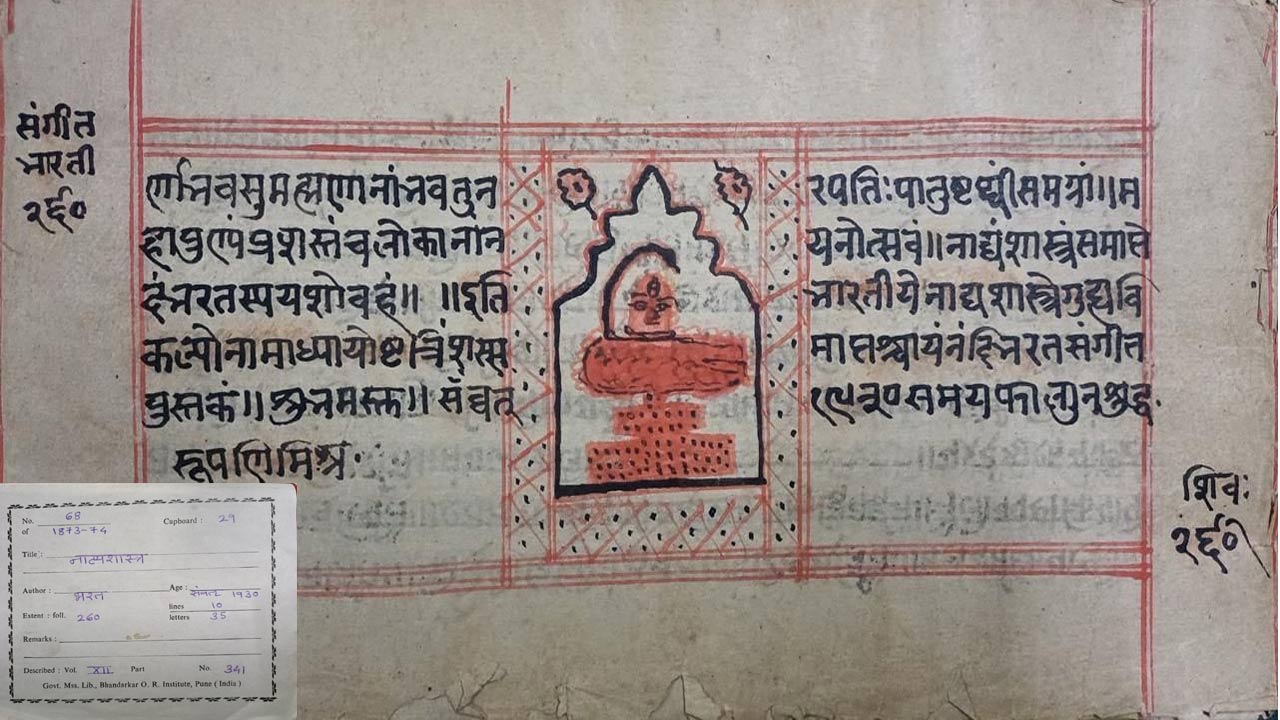 संगीत
भारती
२६०
र्णोभवसुमह्मणनांभवतुन रपतिःपातुष्टथ्वींसमग्रां॥म
हापुण्यंप्रशस्तंचलोकानांन यनोत्सवं॥नाट्यंशास्त्रंसमाप्ते
दंभरतस्पयशोवहं॥ ॥इति भारतीयेनाद्यशास्त्रेगुह्यवि
कल्पोनामाध्यायोष्टात्रिंशस्स माप्तश्चायंनंदिभरतसंगीत
पुस्तकं॥शुभमस्तु॥ संव्वत् १९३०समयफाल्गुनशुद्ध
मिश्र
शिवः
२६०
No. 68 Cupboard : 29
of 1873-74
Title : नाट्यशास्त्र
Author : भरत Age : संवत् 1930
Extent : foll. 260 lines 10
letters 35
Remarks :
Described : Vol. XII Part No. 341
Govt. Mss. Lib., Bhandarkar O. R. Institute, Pune ( India )